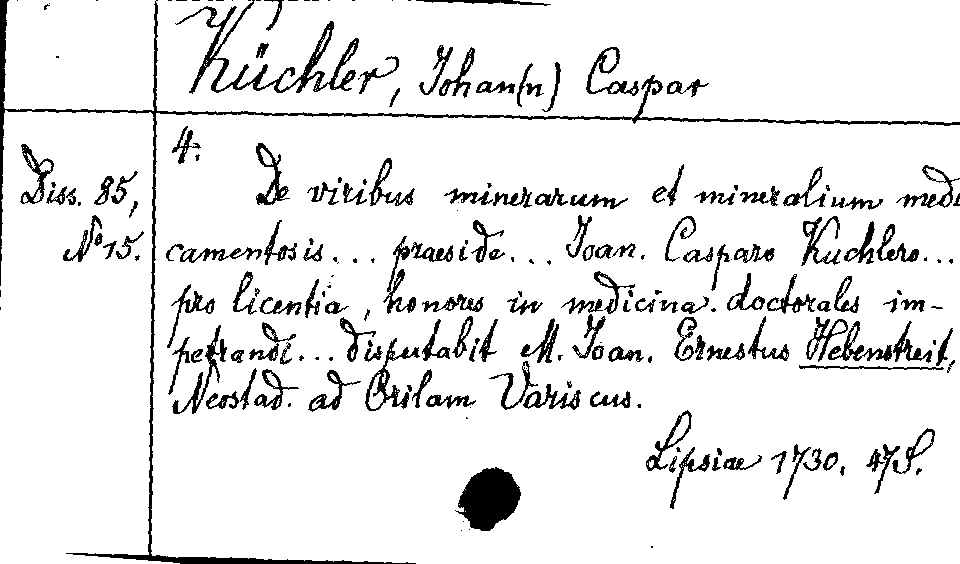 Küchler, Johan(n) Caspar
4.
Diss. 85,
No 15.
De viribus minerarum et mineralium medi
camentosis... praeside... Joan. Casparo Kuchlero...
pro licentia, honores in medicina doctorales im-
petrandi... disputabit M. Joan. Ernestus Hebenstreit,
Neostad. ad Orilam Variscus.
Lipsiae 1730. 47 S.